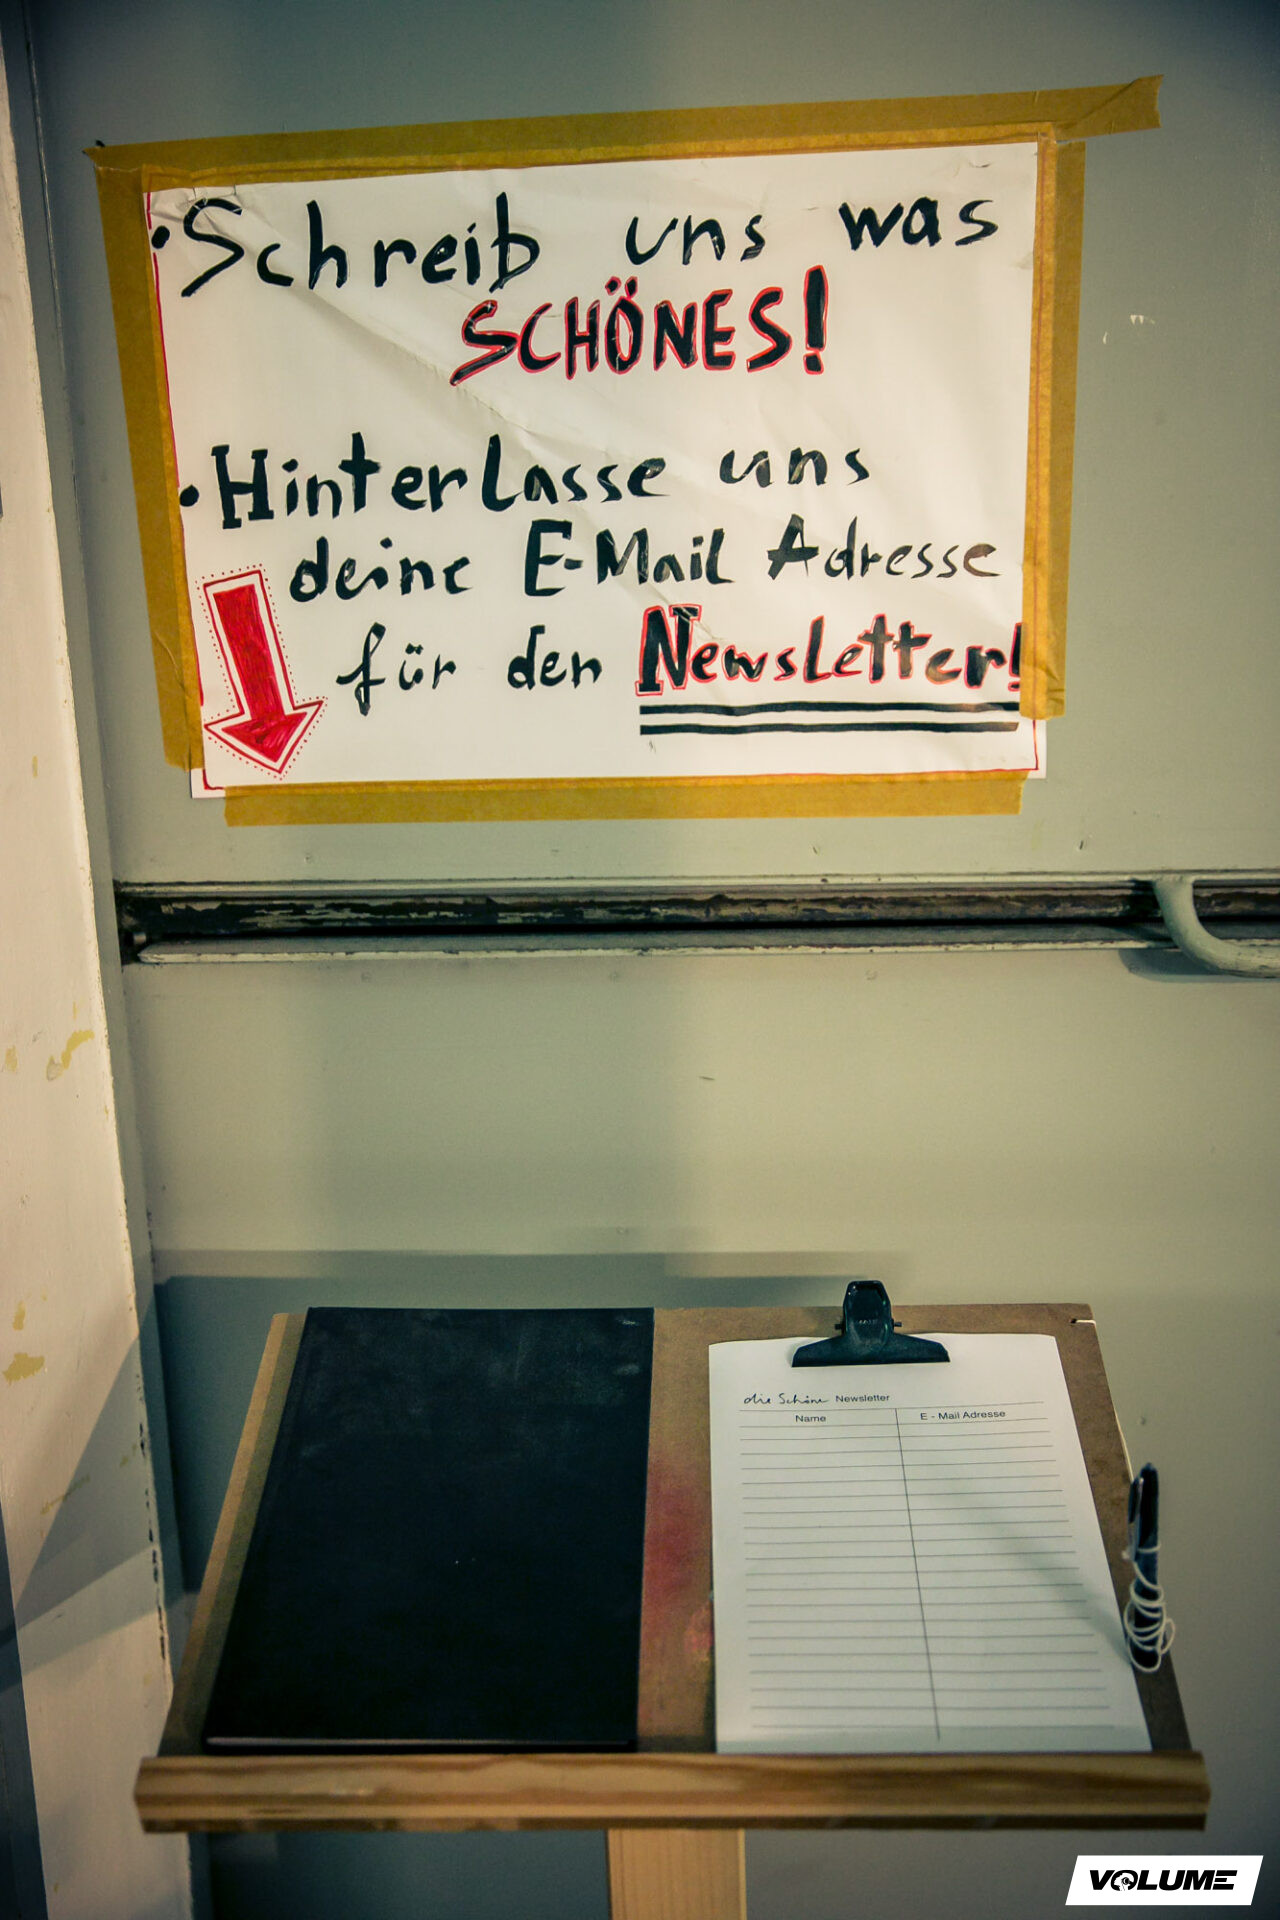 • Schreib uns was
SCHÖNES!
• Hinterlasse uns
deine E-Mail Adresse
für den Newsletter!
die Schöne Newsletter
Name E - Mail Adresse
VOLUME